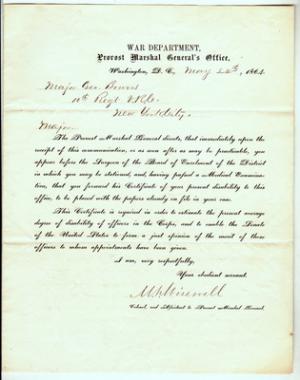 WAR DEPARTMENT,
Provost Marshal General's Office,
Washington, D. C., May 24th, 1864
Major Geo. Bowers
10th Regt V.R.C.
New York City.
Major:
The Provost Marshal General directs, that immediately upon the
receipt of this communication, or as soon after as may be practicable, you
appear before the Surgeon of the Board of Enrolment of the District
in which you may be stationed, and, having passed a Medical Examina-
tion, that you forward his Certificate of your present disability to this
office, to be placed with the papers already on file in your case.
This Certificate is required in order to estimate the present average
degree of disability of officers in the Corps, and to enable the Senate
of the United States to form a just opinion of the merit of those
officers to whom appointments have been given.
I am, very respectfully,
Your obedient servant,
M N Wisewell
Colonel, and Assistant to Provost Marshal General.